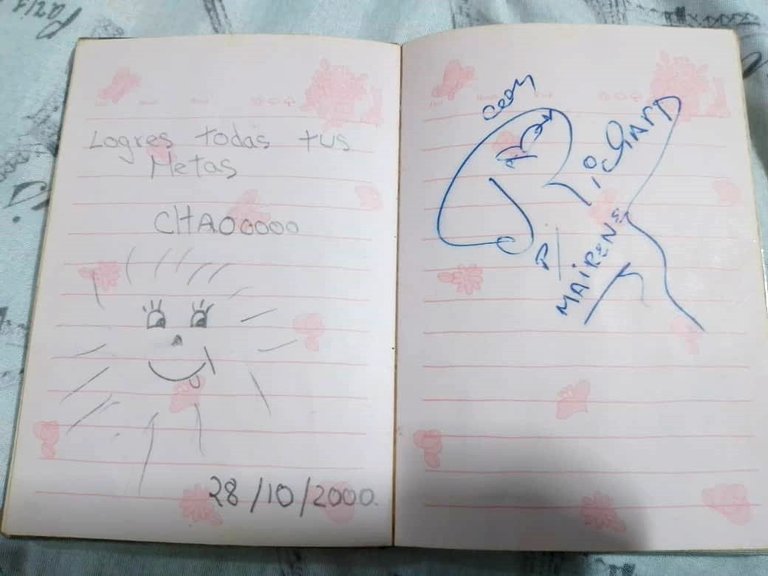 Logres todas tus
Metas
CHAOOOOO
28/10/2000.
RicHARD
P/
MAIRENE